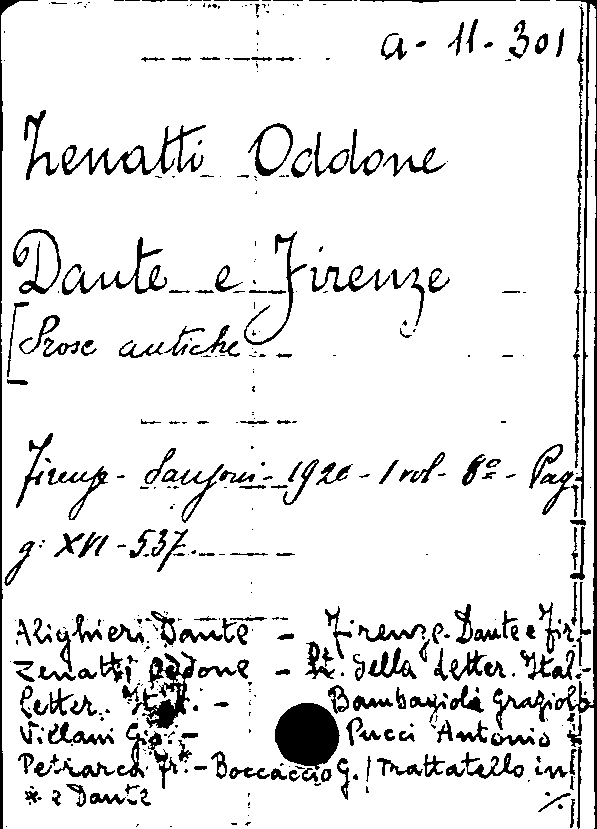 a - 11 - 301
Zenatti Oddone
Dante e Firenze
[Prose antiche
Firenze - Sansoni - 1920 - 1 vol - 8º - Pag
g: XVI - 537.
Alighieri Dante - Firenze. Dante e Fir -
Zenatti Oddone - St. della Letter. Ital. -
Letter. Ital. - Bambagiola Graziolo
Villani Gio. - Pucci Antonio
Petrarca Fr. - Boccaccio G. / Trattatello in
* e Dante ./.